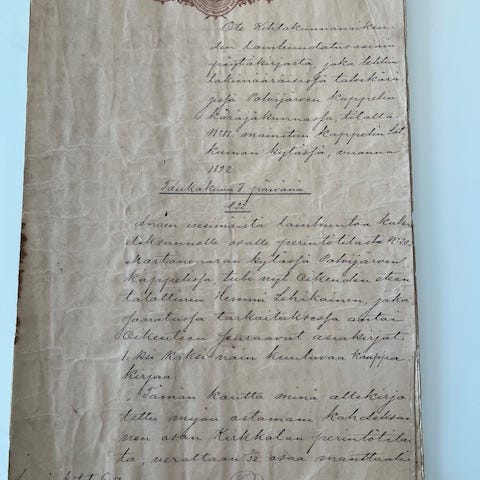 Ote Kihlakunnanoikeu
den lainhuudatusasiain
pöytäkirjasta, joka tehtiin
lakimääräisissä talvikärä
jissä Polvijärven kappelin
käräjäkunnassa, tilalla
N:o mainitun kappelin Sot
kuman kylässä, vuonna
1892.
Toukokuun 7 päivänä
§ 35.
Anoen ensimäistä lainhuutoa kah
deksannelle osalle perintötilasta N:o 20
Martonvaaran kylässä Polvijärven
kappelissa tuli nyt Oikeuden eteen
talollinen Hemmi Lehikoinen, joka
sanotussa tarkoituksessa antoi
Oikeuteen seuraavat asiakirjat.
1. ksi kaksi näin kuuluvaa kauppa
kirjaa.
Tämän kautta minä allekirjo
tettu myön ostamani kahdeksan
nen osan Kirkkolan perintötilas
ta, verattaan 1/32 osaa manttaali